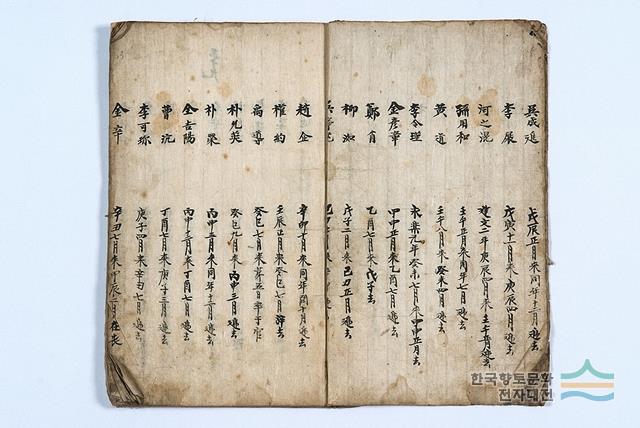 吳成
戊辰正月來同年十二月遞去
李展
戊寅十一月來庚辰四月遞去
河之混
建文二年庚辰四月來壬午五月遞去
孫用和
壬午五月來同年七月遞去
黃道
壬午八月來癸未四月遞去
李合理
永樂元年癸未七月來甲申正月去
金彦章
甲申正月來乙酉七月遞去
鄭肯
乙酉七月來戊子去
柳淑
戊子二月來己丑正月遞去
趙企
辛卯十月來同年閏十月遞去
權約
壬辰正月來癸巳七月辞去
禹導
癸巳七月來
朴凡英
癸巳九月來丙申三月遞去
朴翠
丙申三月來同年十一月遞去
金古陽
丙申十二月來丁酉七月遞去
曹沆
丁酉七月來庚子三月遞去
李可珎
庚子四月來辛丑七月遞去
金
辛丑七月來甲辰二月在喪
한국향토문화
전자대전